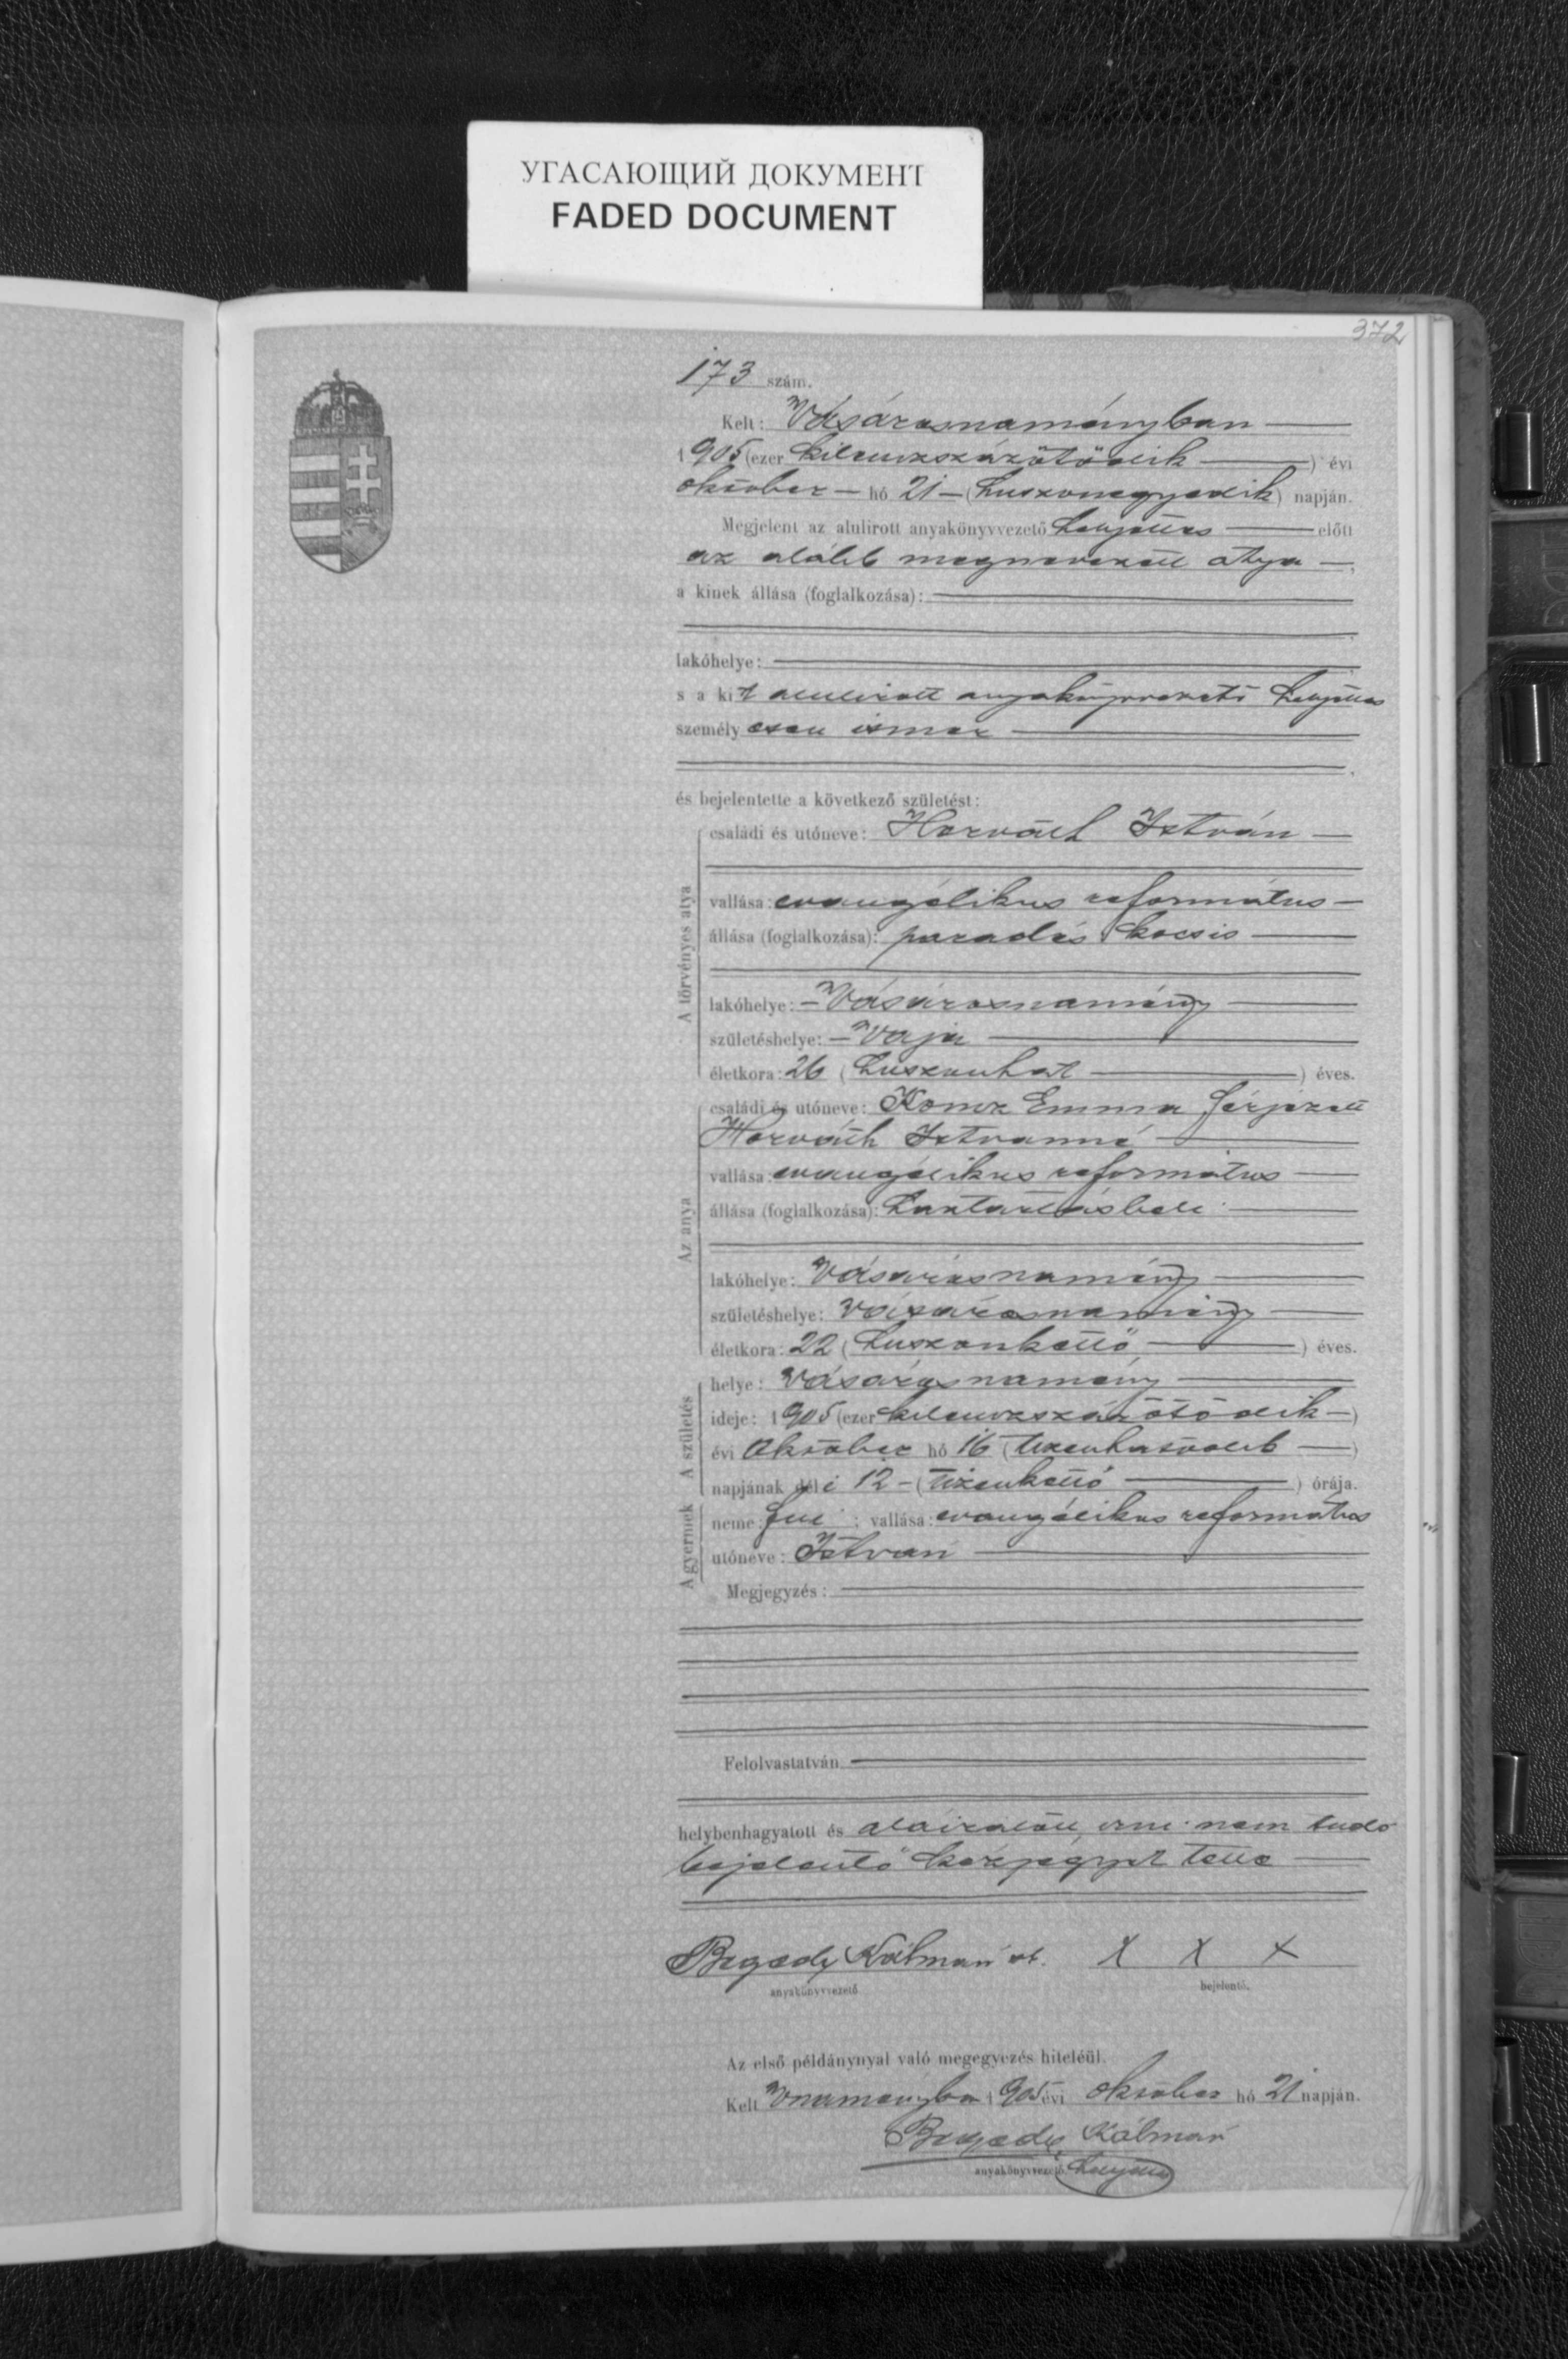 УГАСАЮЩИЙ ДОКУМЕНТ
FADED DOCUMENT
372
173 szám.
Kelt: Vásárosnaményban
1905 (ezer kilenczszázötödik) évi
október hó 21 (huszonegyedik) napján.
Megjelent az alulirott anyakönyvvezető helyettes előtt
az alább megnevezett atya
a kinek állása (foglalkozása):
lakóhelye:
s a kit alulirott anyakönyvvezető helyettes
személyesen ismer
és bejelentette a következő születést:
A törvényes atya
családi és utóneve: Horváth István
vallása: evangélikus református
állása (foglalkozása): parádés kocsis
lakóhelye: Vásárosnamény
születéshelye: Vaja
életkora: 26 (huszonhat) éves.
Az anya
családi és utóneve: Koncz Emma férjezett
Horváth Istvanné
vallása: evangélikus református
állása (foglalkozása): háztartásbeli
lakóhelye: Vásárosnamény
születéshelye: Vásárosnamény
életkora: 22 (huszonkettő) éves.
A születés
helye: Vásárosnamény
ideje: 1905 (ezer kilenczszázötödik)
évi október hó 16 (tizenhatodik)
napjának déli 12 (tizenkettő) órája.
A gyermek
neme: fiú; vallása: evangélikus református
utóneve: István
Megjegyzés:
Felolvastatván
helybenhagyatott és aláiratott, irni nem tudó
bejelentő kézjegyet tette
Kálmán h. X X X
anyakönyvvezető bejelentő.
Az első példánynyal való megegyezés hiteléül.
Kelt Vnaményba 1905 évi október hó 21 napján.
Kálmán
anyakönyvvezető helyettes